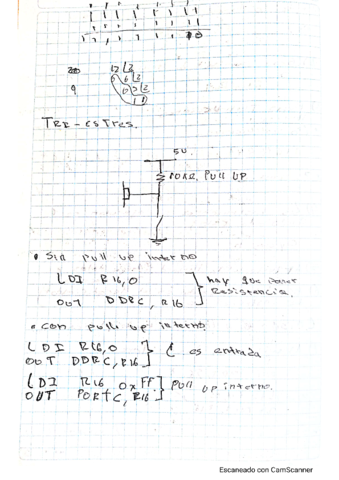 12 | 2
0 6 | 2
0 3 | 2
1 1
TRI-ESTRES.
5V
10KΩ, PULL UP
• Sin pull up interno
LDI R16, 0
OUT DDRC, R16
hay que poner
Resistencia.
• con pull up interno
LDI R16, 0
OUT DDRC, R16
C es entrada
LDI R16, 0xFF
OUT PORTC, R16
Pull up interno.
Escaneado con CamScanner